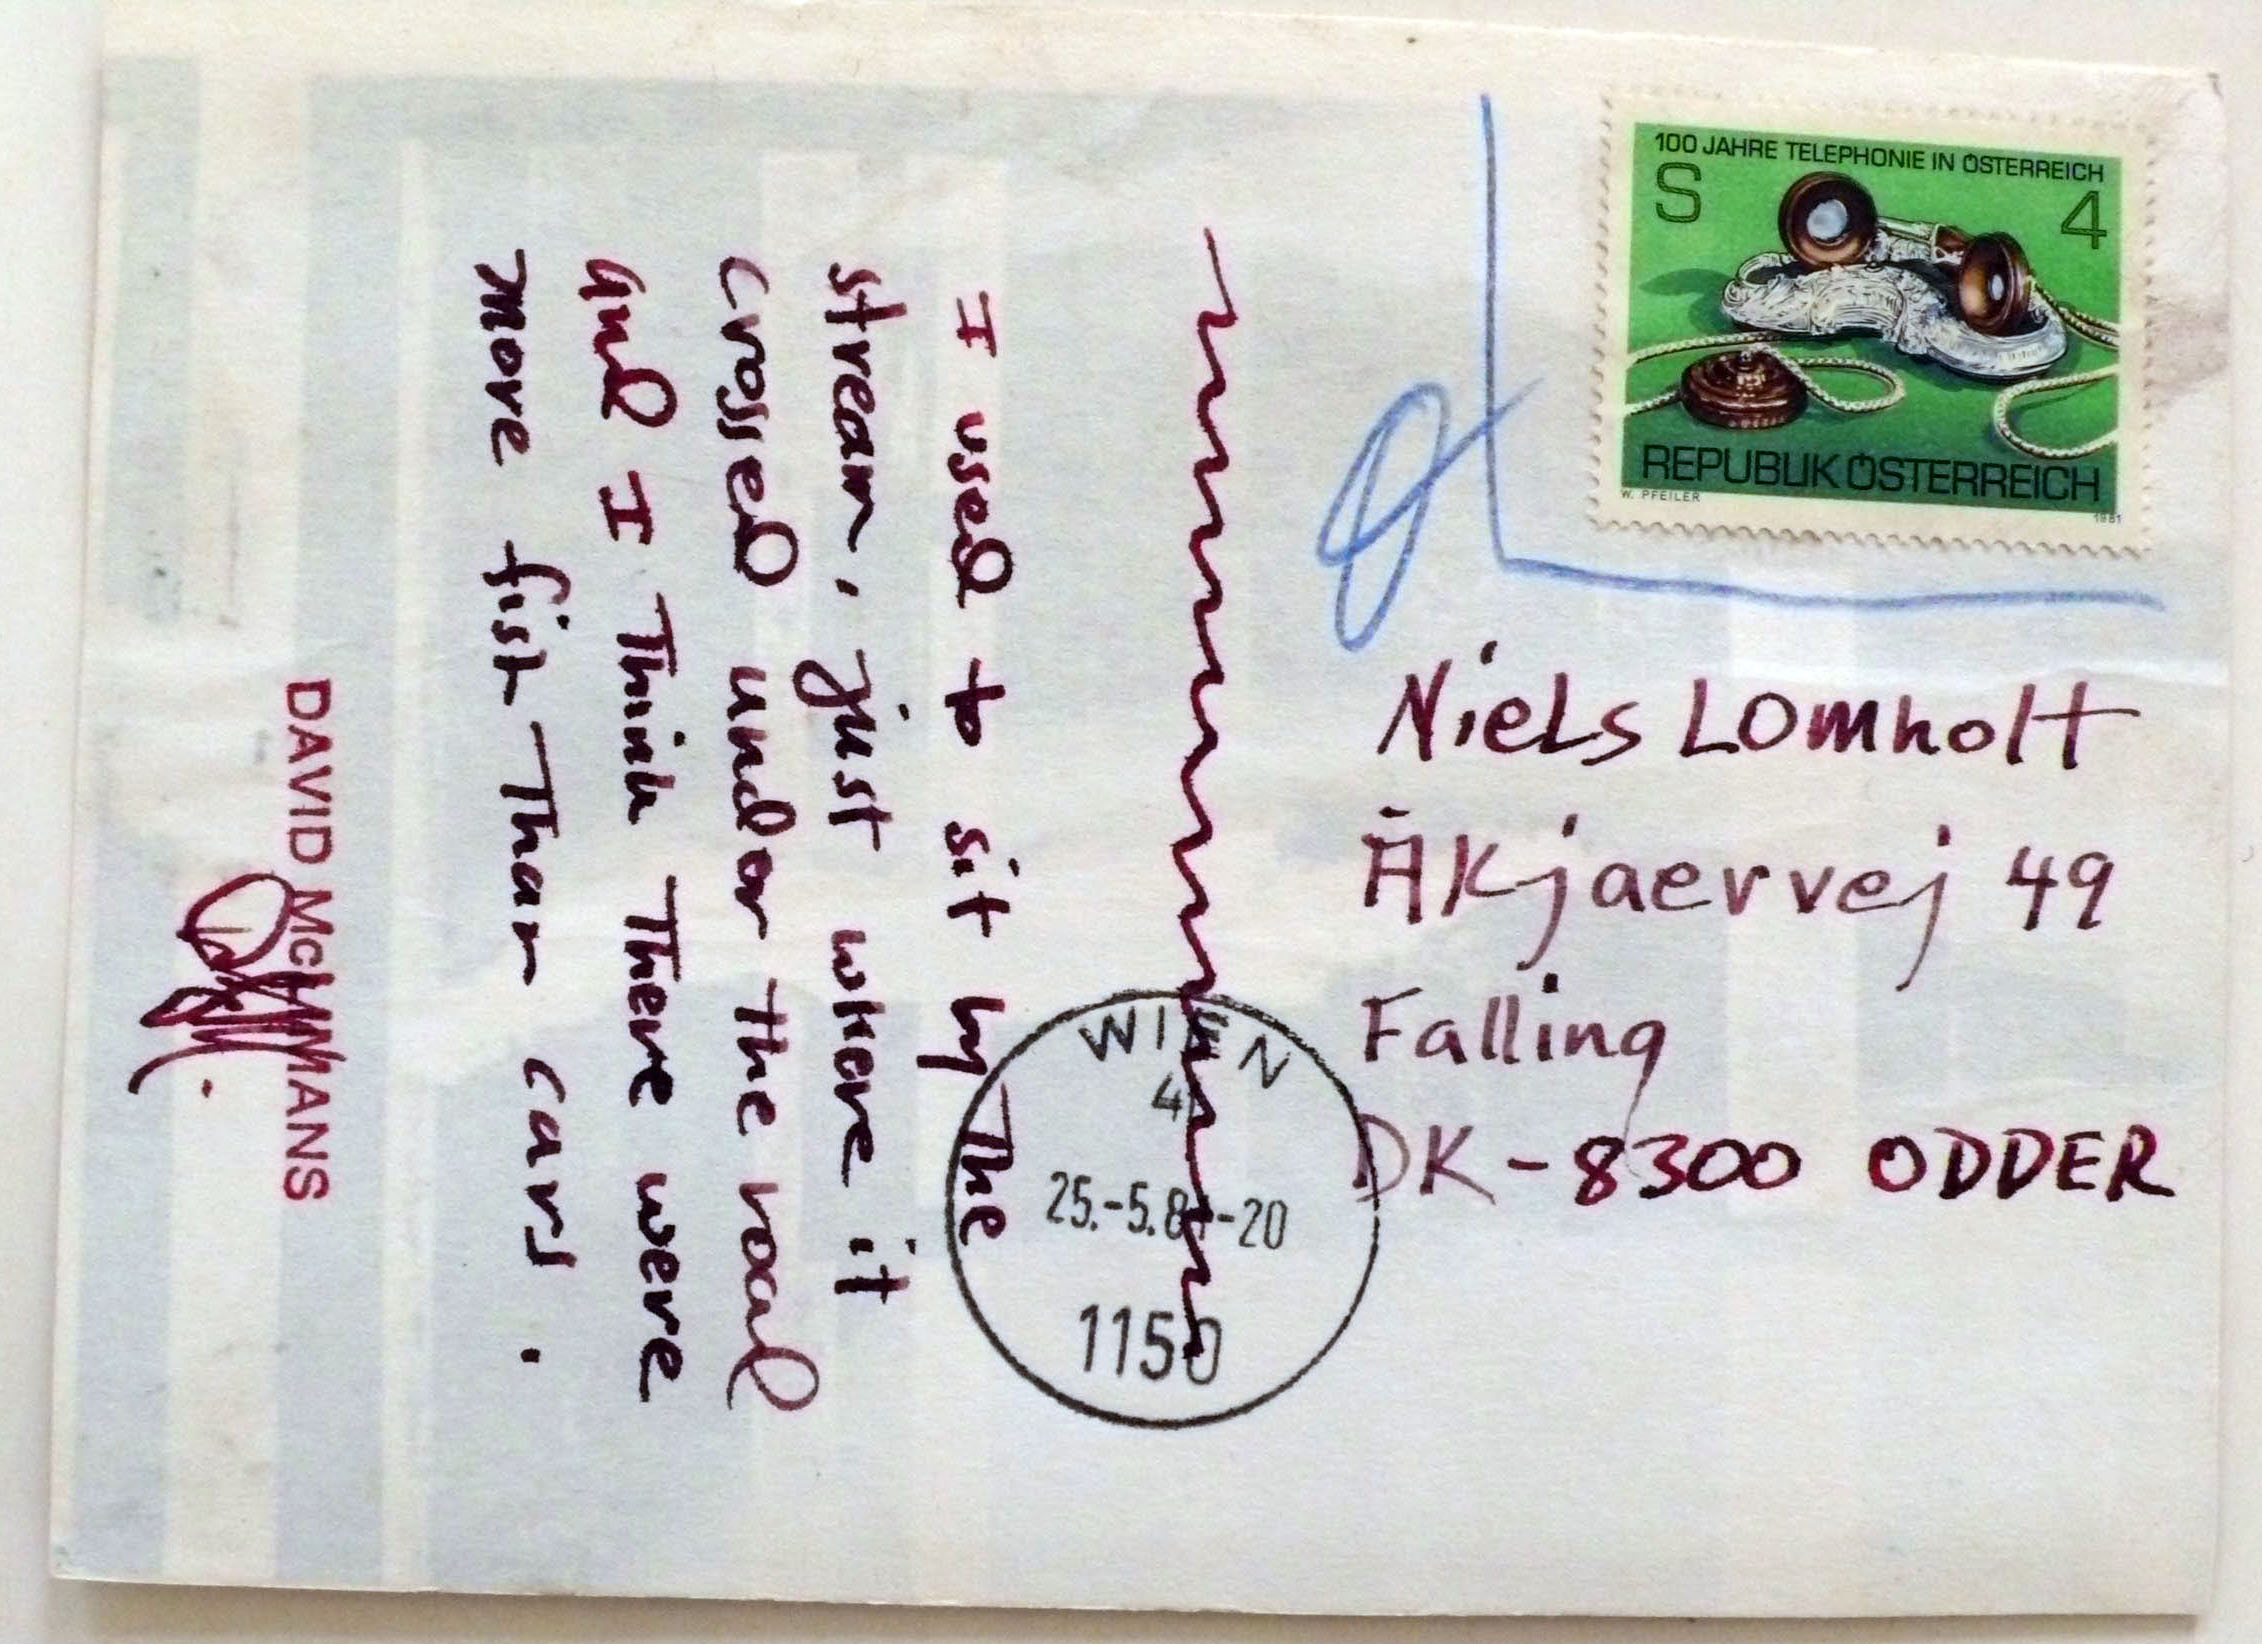 100 JAHRE TELEPHONIE IN ÖSTERREICH
S 4
REPUBLIK ÖSTERREICH
W. PFEILER 1981
Niels Lomholt
Åkjaervej 49
Falling
DK-8300 ODDER
WIEN
1150
I used to sit by The
stream, just where it
crossed under the road
and I Think There were
more fish Than cars.
DAVID McLIMANS